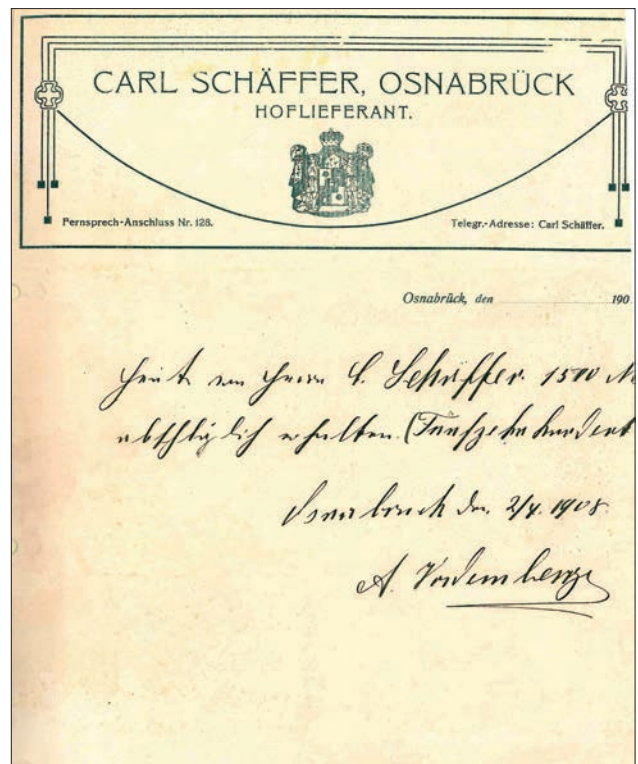 CARL SCHÄFFER, OSNABRÜCK
HOFLIEFERANT.
Fernsprech-Anschluss Nr. 128.
Telegr.-Adresse: Carl Schäffer.
Osnabrück, den 190
Heute von Herrn C. Schäffer. 1500 M
abschläglich erhalten. (Fünfzehnhundert
Osnabrück den 2/4. 1908.
A. Vordemberge